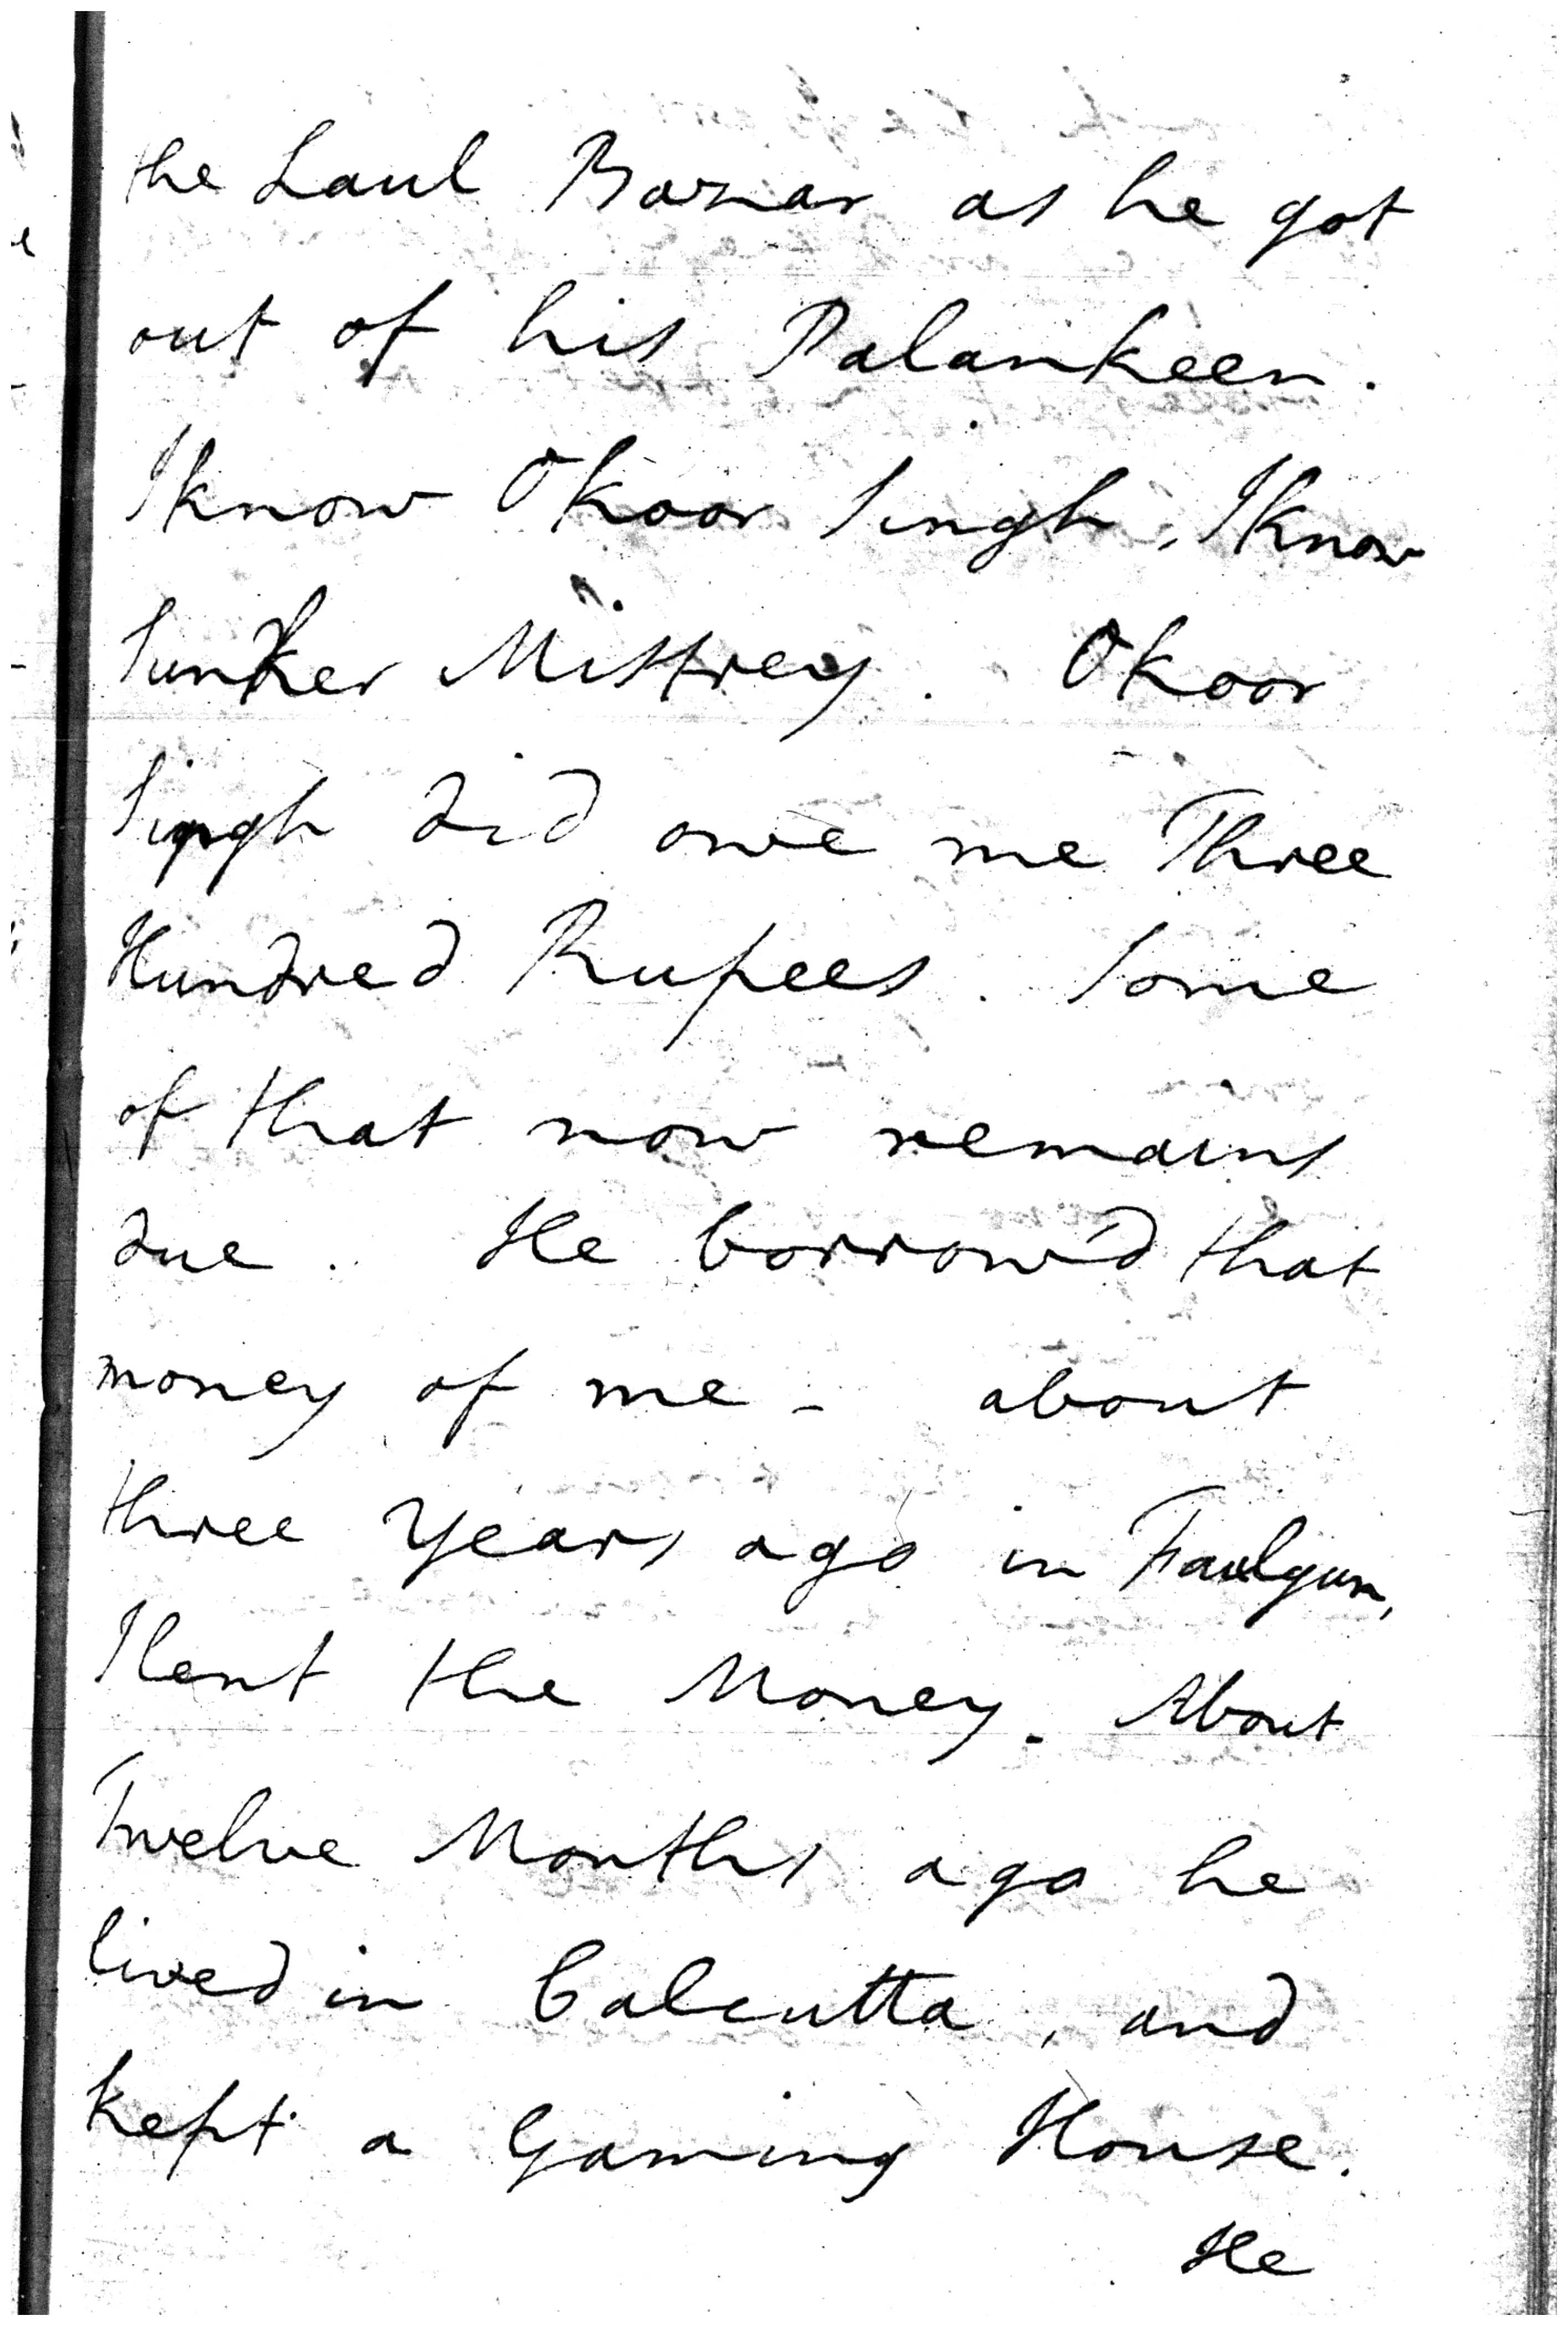 the Laul Bazar as he got
out of his Palankeen.
I know Okoor Singh, I know
Sunker Mistrey. Okoor
Singh did owe me Three
Hundred Rupees. Some
of that now remains
due. He borrow'd that
money of me - about
three Years ago in Faulgun,
I lent the Money. About
Twelve Months ago he
lived in Calcutta, and
kept a Gaming House.
He